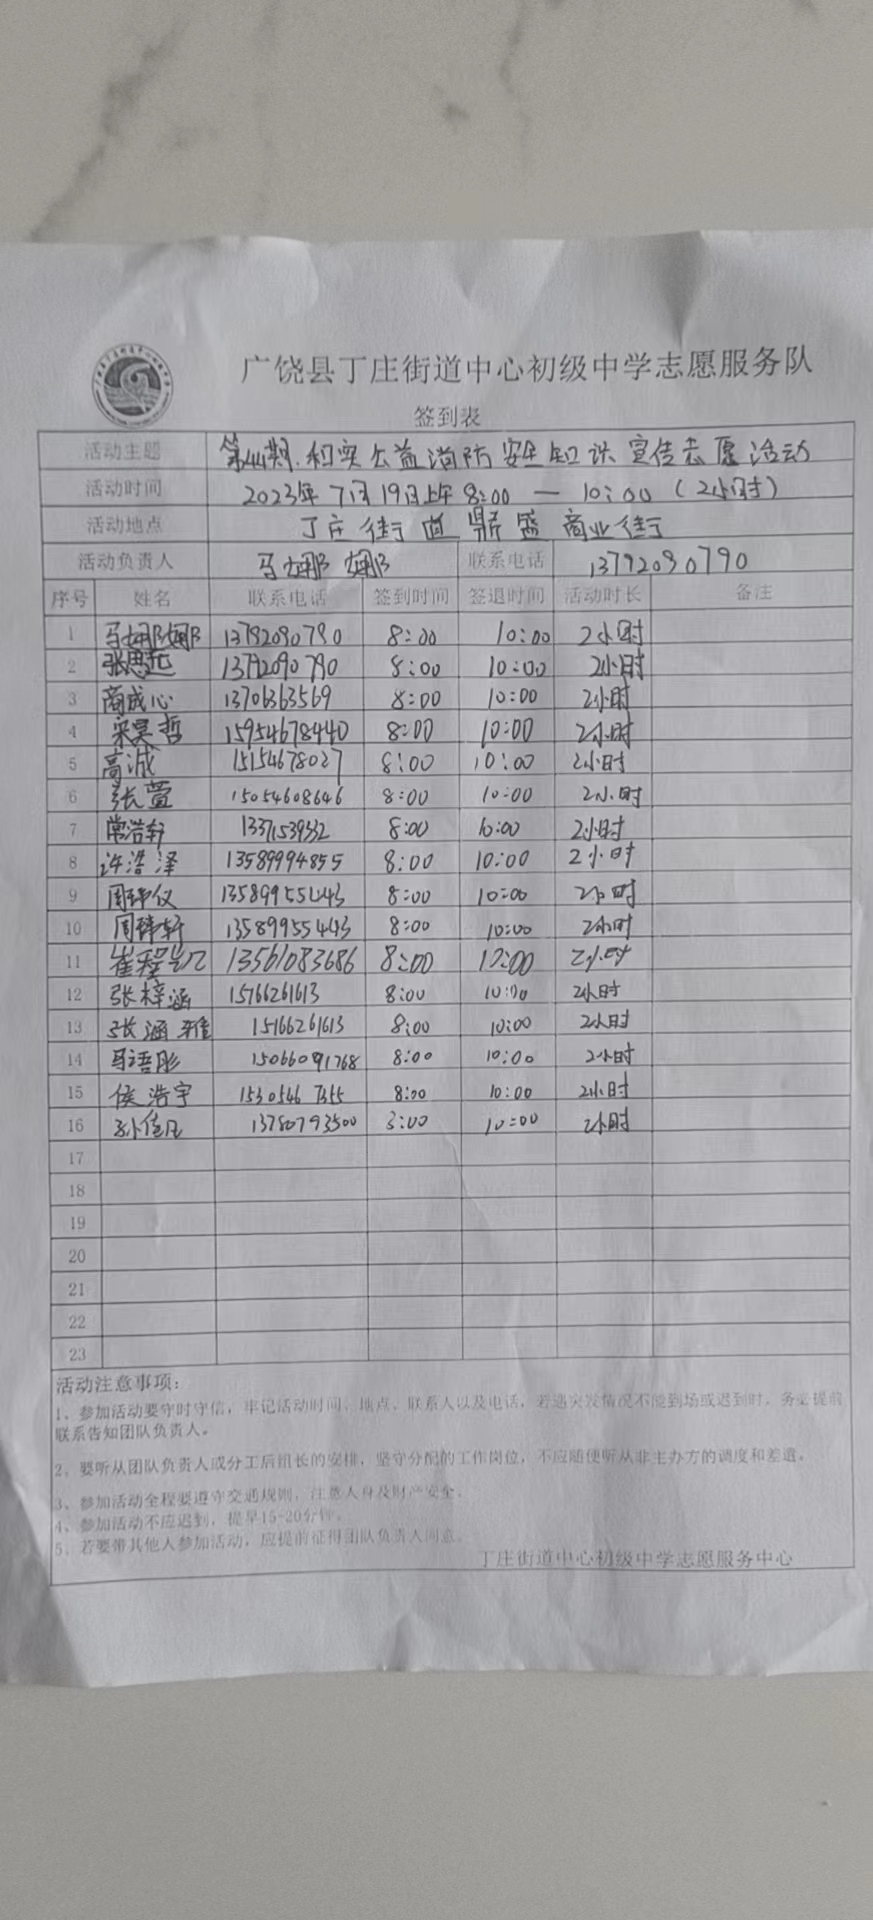 广饶县丁庄街道中心初级中学志愿服务队
签到表
活动主题 第44期.和实公益消防安全知识宣传志愿活动
活动时间 2023年7月19日上午8:00 — 10:00 (2小时)
活动地点 丁庄街道鼎盛商业街
活动负责人 马娜娜 联系电话 13792090790
序号 姓名 联系电话 签到时间 签退时间 活动时长 备注
1 马娜娜 13792090790 8:00 10:00 2小时
2 张思远 13792090790 8:00 10:00 2小时
3 商成心 13706363569 8:00 10:00 2小时
4 宋昊哲 15954678440 8:00 10:00 2小时
5 高诚 15154678027 8:00 10:00 2小时
6 张萱 15054608646 8:00 10:00 2小时
7 常浩轩 13371539332 8:00 10:00 2小时
8 许浩泽 13589994855 8:00 10:00 2小时
9 周玮仪 13589955443 8:00 10:00 2小时
10 周玮轩 13589955443 8:00 10:00 2小时
11 崔程凯 13561083686 8:00 10:00 2小时
12 张梓涵 15766261613 8:00 10:00 2小时
13 张涵雅 15166261613 8:00 10:00 2小时
14 马语彤 15066091768 8:00 10:00 2小时
15 侯浩宇 15305467355 8:00 10:00 2小时
16 孙佳凡 13780793500 8:00 10:00 2小时
17
18
19
20
21
22
23
活动注意事项：
1、参加活动要守时守信，牢记活动时间、地点、联系人以及电话，若遇突发情况不能到场或迟到时，务必提前
联系告知团队负责人。
2、要听从团队负责人或分工后组长的安排，坚守分配的工作岗位，不应随便听从非主办方的调度和差遣。
3、参加活动全程要遵守交通规则，注意人身及财产安全。
4、参加活动不应迟到，提早15-20分钟。
5、若要带其他人参加活动，应提前征得团队负责人同意。
丁庄街道中心初级中学志愿服务中心